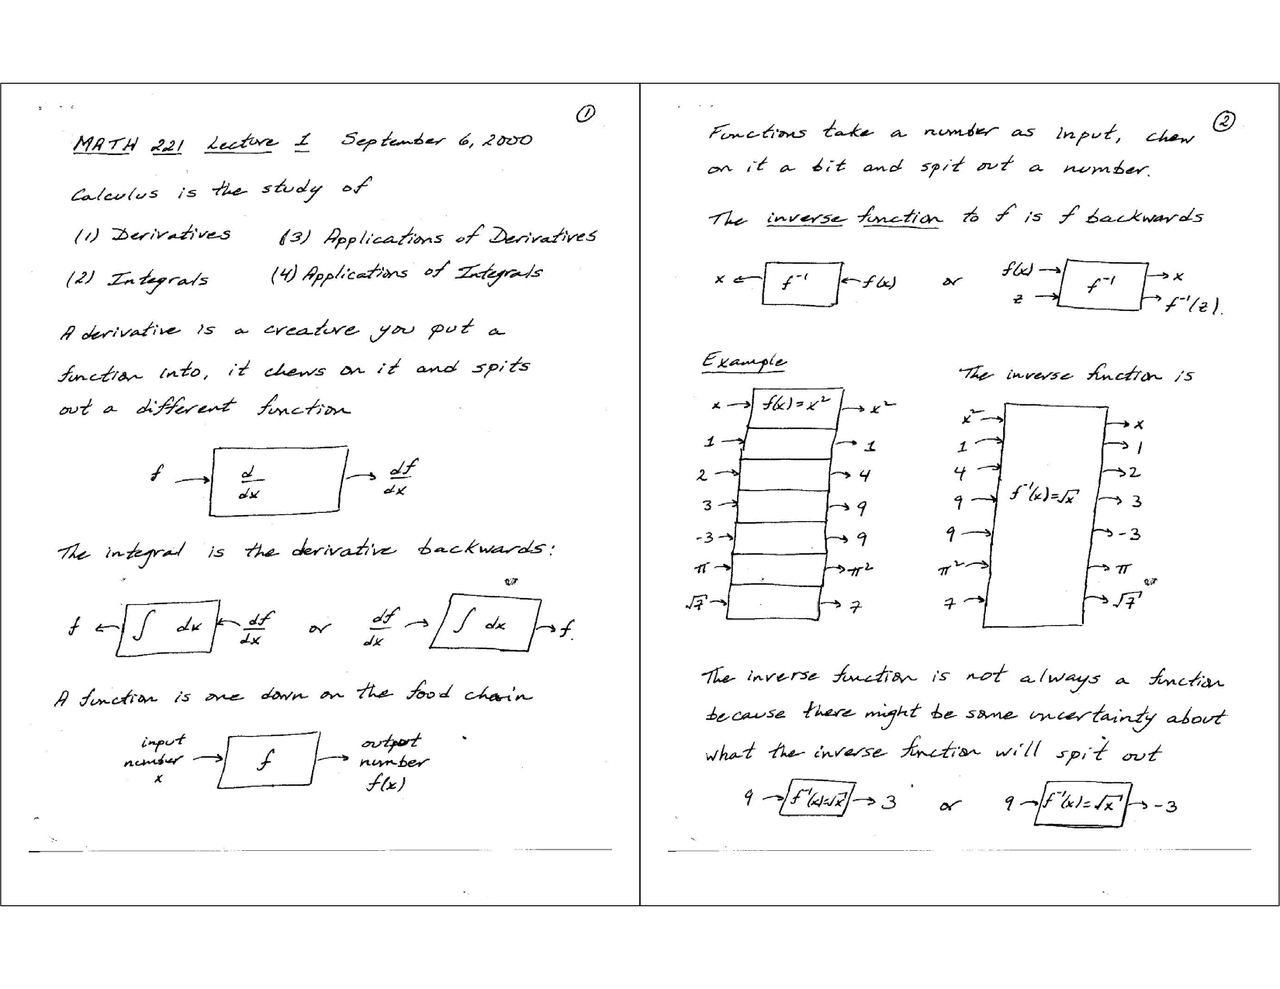 ①
MATH 221 Lecture 1 September 6, 2000
Calculus is the study of
(1) Derivatives (3) Applications of Derivatives
(2) Integrals (4) Applications of Integrals
A derivative is a creature you put a
function into, it chews on it and spits
out a different function
f → d/dx → df/dx
The integral is the derivative backwards:
f ← ∫ dx ← df/dx or df/dx → ∫ dx → f.
A function is one down on the food chain
input number x → f → output number f(x)
②
Functions take a number as input, chew
on it a bit and spit out a number.
The inverse function to f is f backwards
x ← f⁻¹ ← f(x) or f(x) → f⁻¹ → x
z → f⁻¹(z).
Example
x → f(x)=x² → x²
1 → 1
2 → 4
3 → 9
-3 → 9
π → π²
√7 → 7
The inverse function is
x² → x
1 → 1
4 → 2
f⁻¹(x)=√x
9 → 3
9 → -3
π² → π
7 → √7
The inverse function is not always a function
because there might be some uncertainty about
what the inverse function will spit out
9 → f⁻¹(x)=√x → 3 or 9 → f⁻¹(x)=√x → -3